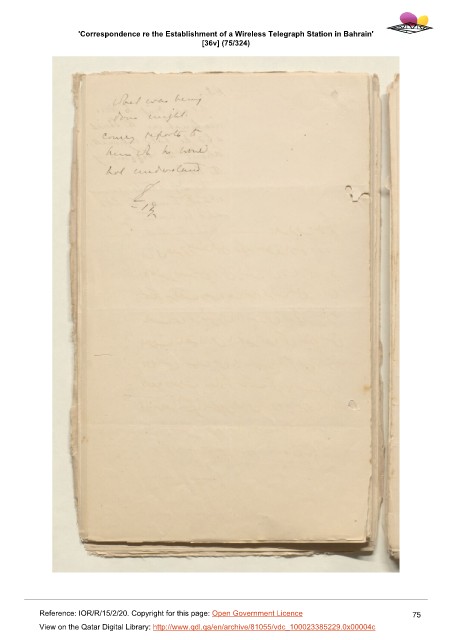 'Correspondence re the Establishment of a Wireless Telegraph Station in Bahrain'
[36v] (75/324)
that was being
done might
convey reports to
him wh he would
not understand
Reference: IOR/R/15/2/20. Copyright for this page: Open Government Licence
75
View on the Qatar Digital Library: http://www.qdl.qa/en/archive/81055/vdc_100023385229.0x00004c